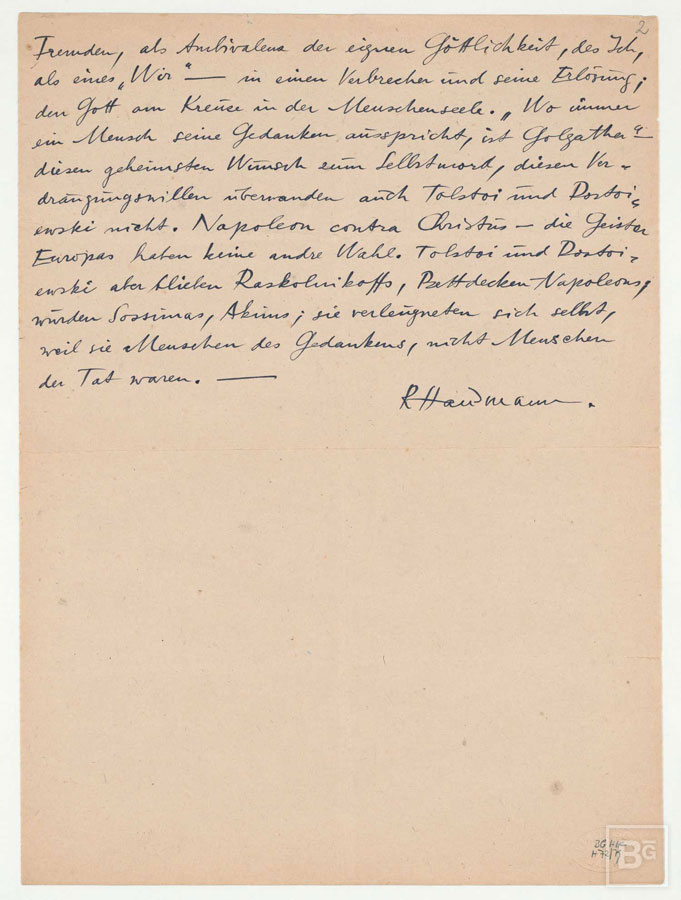 2
Fremden, als Ambivalenz der eignen Göttlichkeit, des Ich,
als eines „Wir" — in einen Verbrecher und seine Erlösung;
den Gott am Kreuze in der Menschenseele. „Wo immer
ein Mensch seine Gedanken ausspricht, ist Golgatha" —
diesen geheimsten Wunsch zum Selbstmord, diesen Ver-
drängungswillen überwanden auch Tolstoi und Dostoi-
ewski nicht. Napoleon contra Christus — die Geister
Europas haben keine andre Wahl. Tolstoi und Dostoi-
ewski aber blieben Raskolnikoffs, Bettdecken-Napoleons,
wurden Sossimas, Akims; sie verleugneten sich selbst,
weil sie Menschen des Gedankens, nicht Menschen
der Tat waren. —
RHausmann.
BG